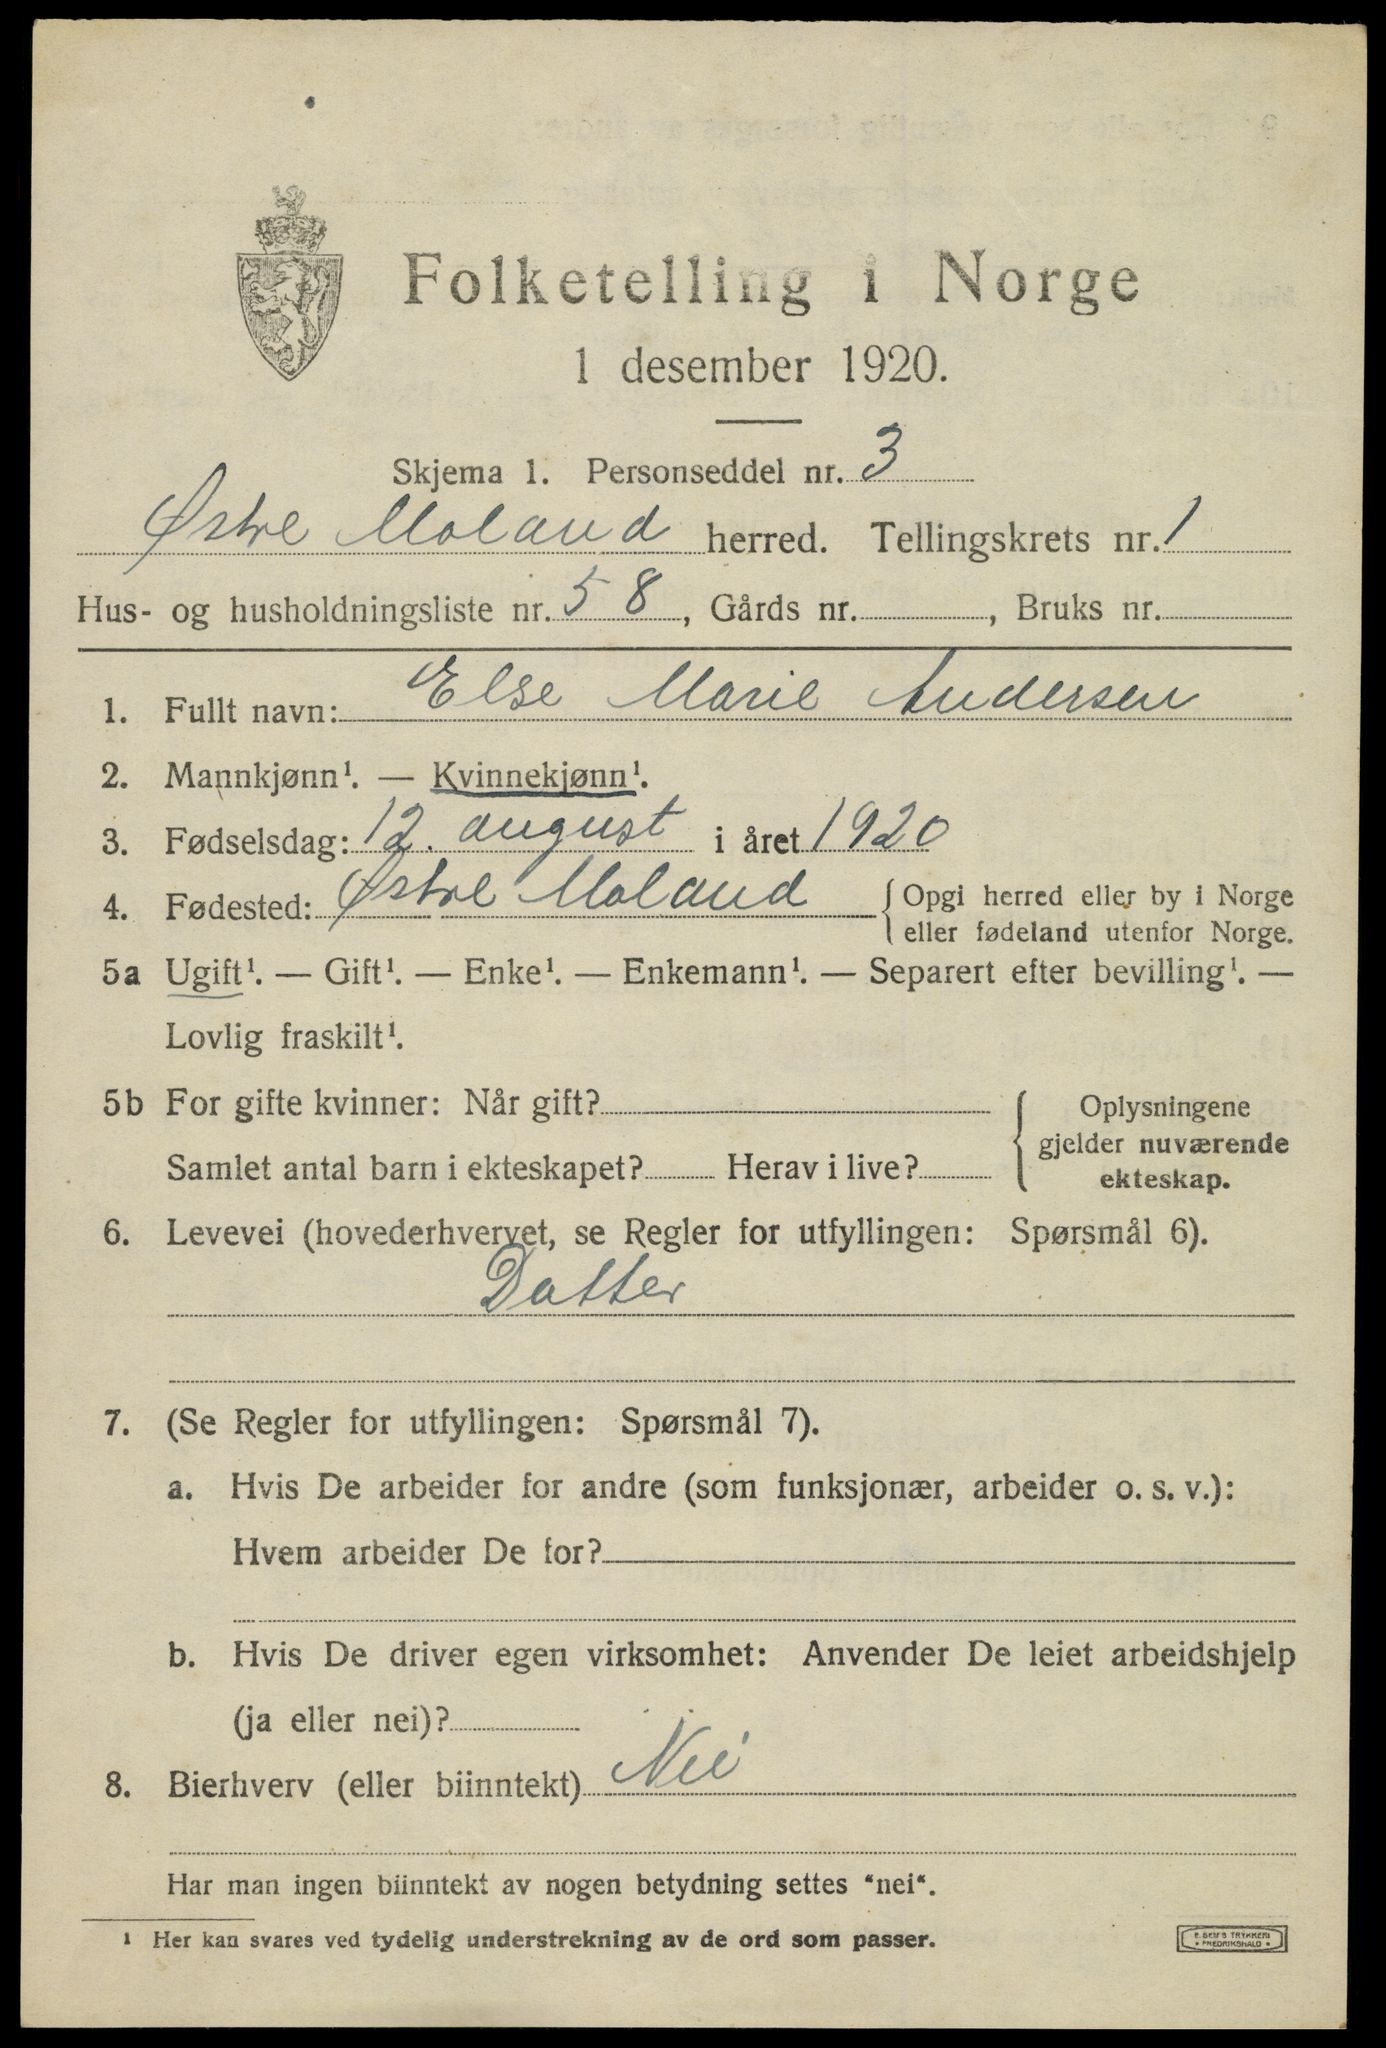 Folketelling i Norge
1 desember 1920.
Skjema 1. Personseddel nr. 3
Østre Moland herred. Tellingskrets nr. 1
Hus- og husholdningsliste nr. 58, Gårds nr. , Bruks nr.
1. Fullt navn: Else Marie Andersen
2. Mannkjønn¹. — Kvinnekjønn¹.
3. Fødselsdag: 12. august i året 1920
4. Fødested: Østre Moland { Opgi herred eller by i Norge
eller fødeland utenfor Norge.
5a Ugift¹. — Gift¹. — Enke¹. — Enkemann¹. — Separert efter bevilling¹. —
Lovlig fraskilt¹.
5b For gifte kvinner: Når gift? { Oplysningene
gjelder nuværende
Samlet antal barn i ekteskapet? Herav i live?
ekteskap.
6. Levevei (hovederhvervet, se Regler for utfyllingen: Spørsmål 6).
Datter
7. (Se Regler for utfyllingen: Spørsmål 7).
a. Hvis De arbeider for andre (som funksjonær, arbeider o. s. v.):
Hvem arbeider De for?
b. Hvis De driver egen virksomhet: Anvender De leiet arbeidshjelp
(ja eller nei)?
8. Bierhverv (eller biinntekt) Nei
Har man ingen biinntekt av nogen betydning settes "nei".
¹ Her kan svares ved tydelig understrekning av de ord som passer.
E. SEM'S TRYKKERI
• FREDRIKSHALD •